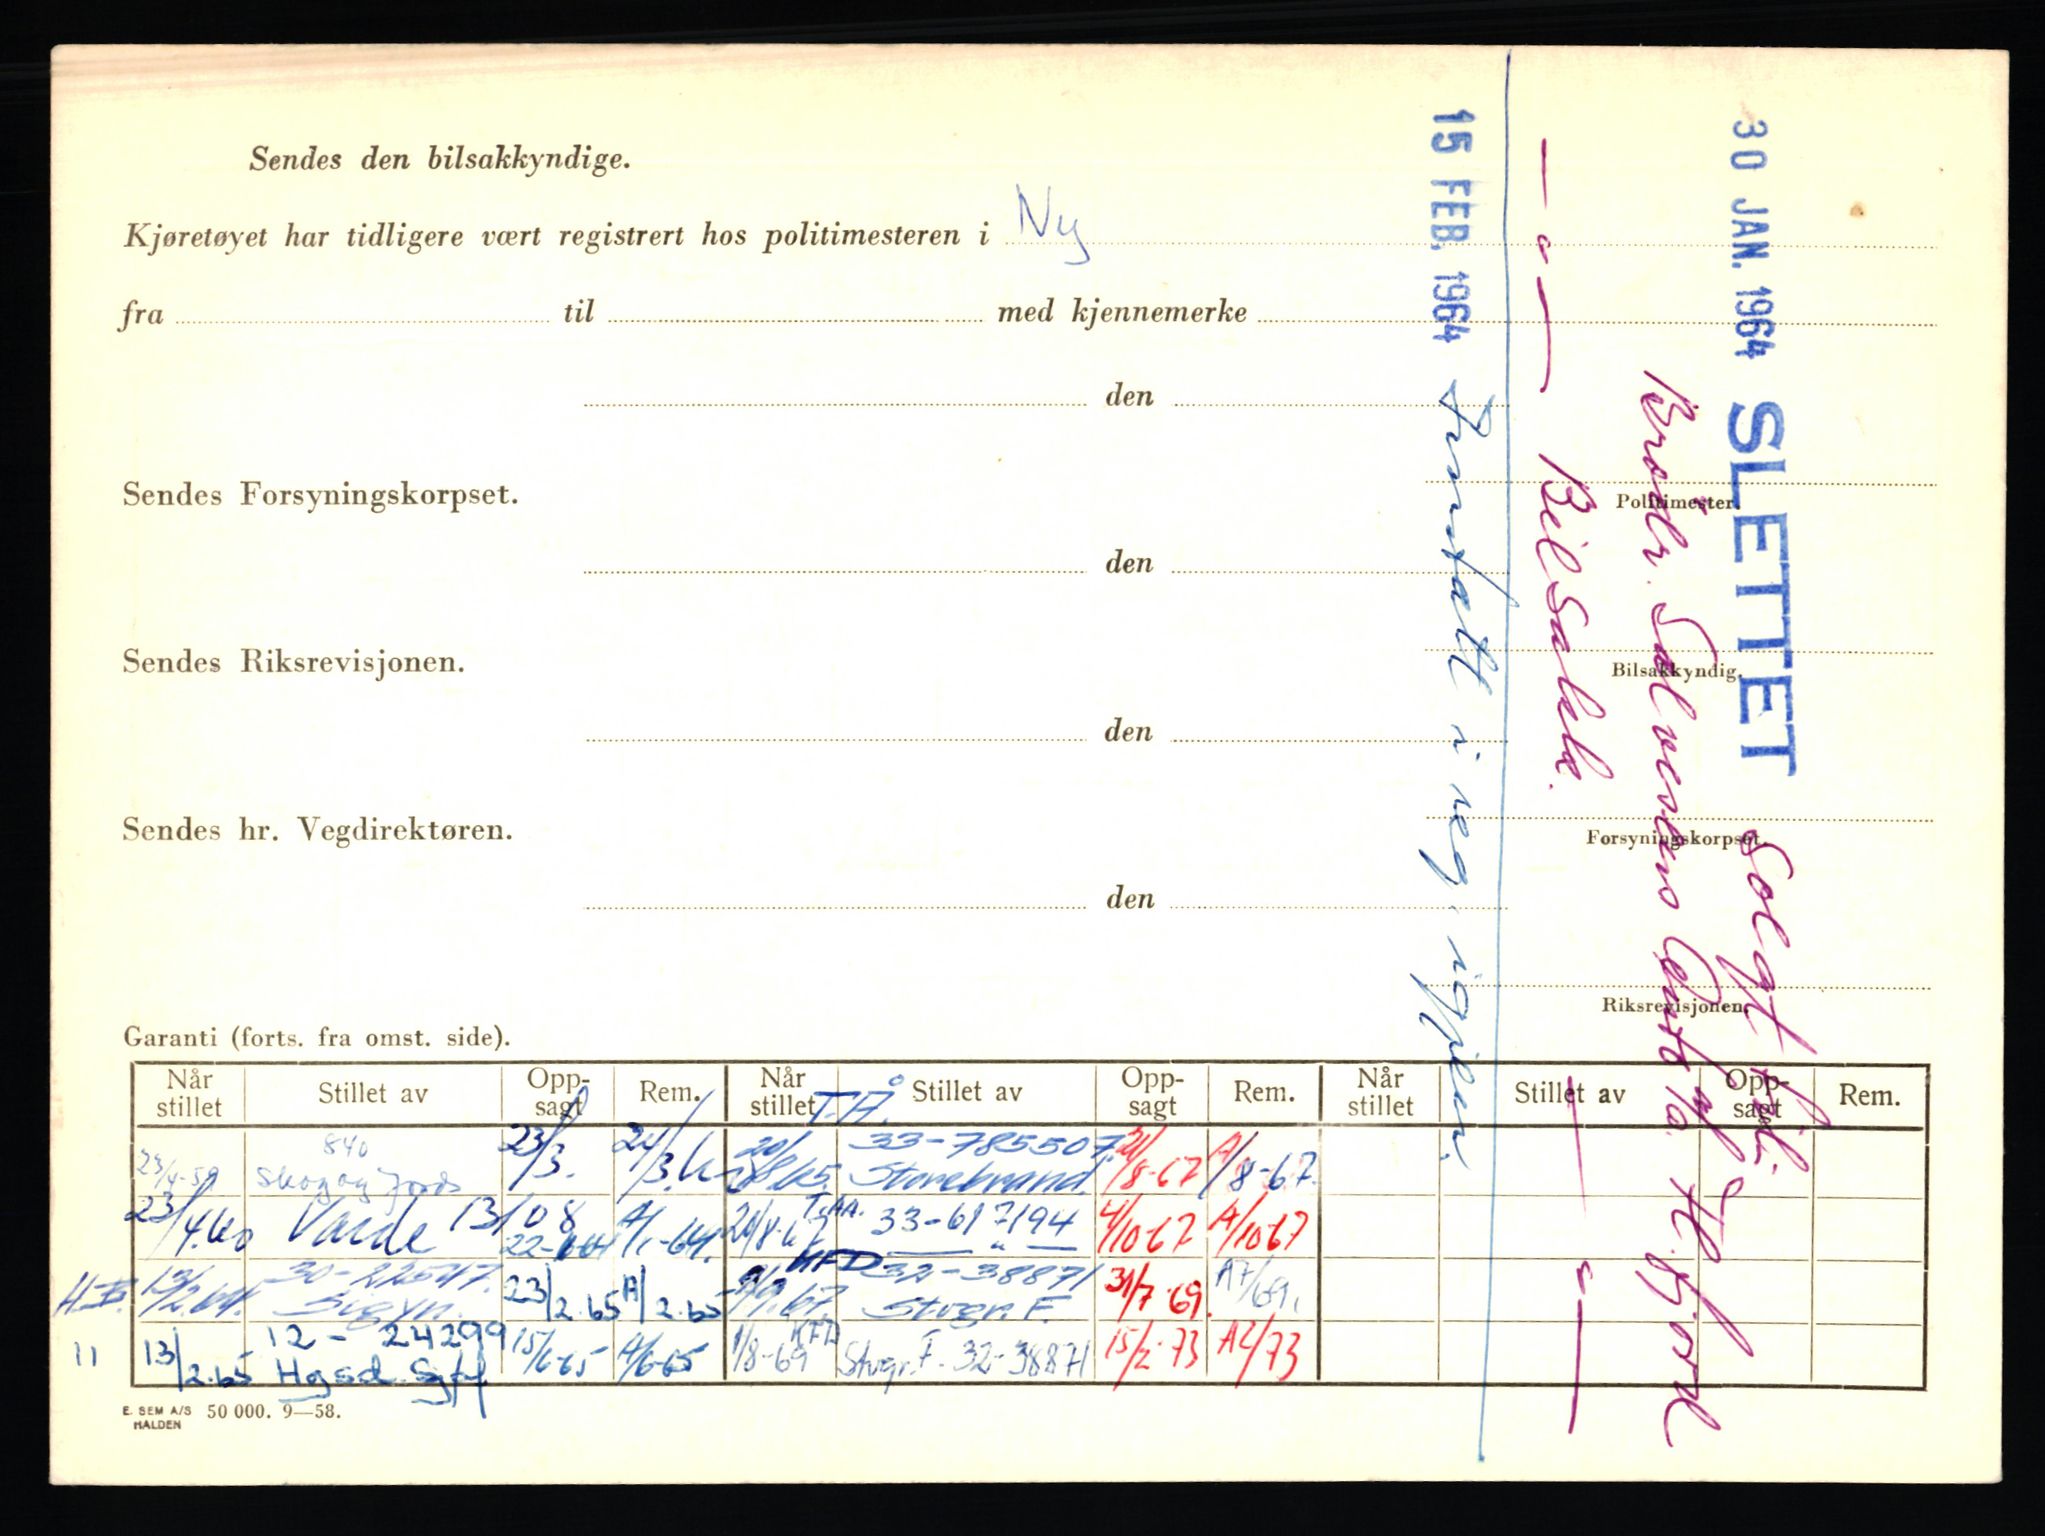 Sendes den bilsakkyndige.
Kjøretøyet har tidligere vært registrert hos politimesteren i Ny
fra til med kjennemerke
den
Politimester.
Sendes Forsyningskorpset.
den
Bilsakkyndig.
Sendes Riksrevisjonen.
den
Forsyningskorpset.
Sendes hr. Vegdirektøren.
den
Riksrevisjonen.
30 JAN. 1964 SLETTET Solgt til
Brødr. Salvesens Auto
Bilsakk.
15 FEB. 1964 Innsatt i reg. igjen.
Garanti (forts. fra omst. side).
Når stillet Stillet av Opp-sagt Rem. Når stillet Stillet av Opp-sagt Rem. Når stillet Stillet av Opp-sagt Rem.
23/4-59 840 Skog og Jords 23/3. 24/3. 33-785507. Storebrand 8-67 A/8-67.
23/4.60 Varde 13108 A/1-64. 33-617194 4/10-67 A/10-67
13/2.64. Sigyn. 23/2.65 A/2.65 HFD 32-38871 Stvgr. F. 31/7.69. A7/69.
11 13/2.65 12-24299 15/6-65 A/6-65 1/8-69 Stvgr. F. 32-38871 15/2-73 A2/73
E. SEM A/S HALDEN 50 000. 9—58.